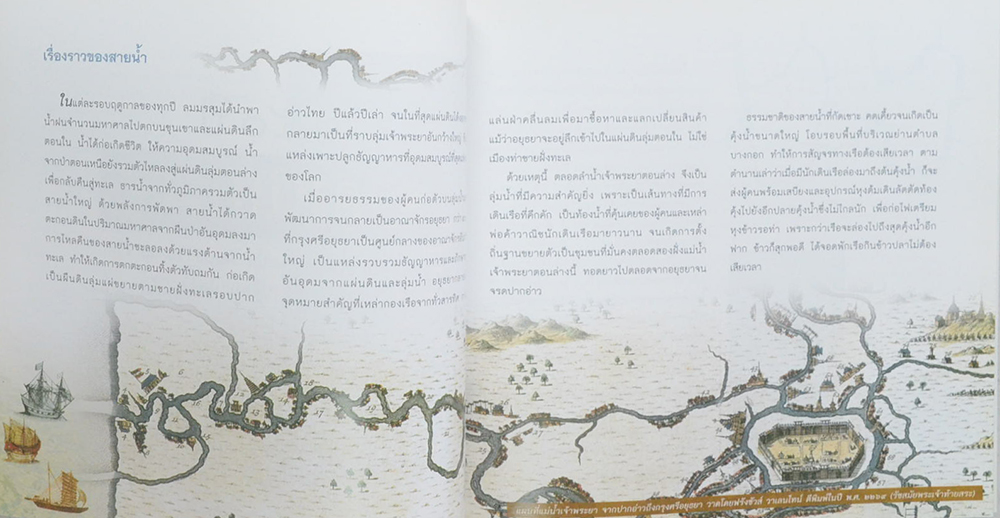 เรื่องราวของสายน้ำ
ในแต่ละรอบฤดูกาลของทุกปี ลมมรสุมได้นำพา
น้ำฝนจำนวนมหาศาลไปตกบนขุนเขาและแผ่นดินลึก
ตอนใน น้ำได้ก่อเกิดชีวิต ให้ความอุดมสมบูรณ์ น้ำ
จากป่าตอนเหนือยังรวมตัวไหลลงสู่แผ่นดินลุ่มตอนล่าง
เพื่อกลับคืนสู่ทะเล ธารน้ำจากทั่วภูมิภาครวมตัวเป็น
สายน้ำใหญ่ ด้วยพลังการพัดพา สายน้ำได้กวาด
ตะกอนดินในปริมาณมหาศาลจากผืนป่าอันอุดมลงมา
การไหลคืนของสายน้ำชะลอลงด้วยแรงต้านจากน้ำ
ทะเล ทำให้เกิดการตกตะกอนทิ้งตัวทับถมกัน ก่อเกิด
เป็นผืนดินลุ่มแผ่ขยายตามชายฝั่งทะเลรอบปาก
อ่าวไทย ปีแล้วปีเล่า จนในที่สุดแผ่นดินได้
กลายมาเป็นที่ราบลุ่มเจ้าพระยาอันกว้างใหญ่
แหล่งเพาะปลูกธัญญาหารที่อุดมสมบูรณ์ที่สุด
ของโลก
เมื่ออารยธรรมของผู้คนก่อตัวบนลุ่มน้ำ
พัฒนาการจนกลายเป็นอาณาจักรอยุธยา
ที่กรุงศรีอยุธยาเป็นศูนย์กลางของอาณาจักร
ใหญ่ เป็นแหล่งรวบรวมธัญญาหารและ
อันอุดมจากแผ่นดินและลุ่มน้ำ อยุธยา
จุดหมายสำคัญที่เหล่ากองเรือจากทั่วสารทิศ
แล่นฝ่าคลื่นลมเพื่อมาซื้อหาและแลกเปลี่ยนสินค้า
แม้ว่าอยุธยาจะอยู่ลึกเข้าไปในแผ่นดินลุ่มตอนใน ไม่ใช่
เมืองท่าชายฝั่งทะเล
ด้วยเหตุนี้ ตลอดลำน้ำเจ้าพระยาตอนล่าง จึงเป็น
ลุ่มน้ำที่มีความสำคัญยิ่ง เพราะเป็นเส้นทางที่มีการ
เดินเรือที่คึกคัก เป็นท้องน้ำที่คุ้นเคยของผู้คนและเหล่า
พ่อค้าวาณิชนักเดินเรือมายาวนาน จนเกิดการตั้ง
ถิ่นฐานขยายตัวเป็นชุมชนที่มั่นคงตลอดสองฝั่งแม่น้ำ
เจ้าพระยาตอนล่างนี้ ทอดยาวไปตลอดจากอยุธยาจน
จรดปากอ่าว
ธรรมชาติของสายน้ำที่กัดเซาะ คดเคี้ยวจนเกิดเป็น
คุ้งน้ำขนาดใหญ่ โอบรอบพื้นที่บริเวณย่านตำบล
บางกอก ทำให้การสัญจรทางเรือต้องเสียเวลา ตาม
ตำนานเล่าว่าเมื่อมีนักเดินเรือล่องมาถึงต้นคุ้งน้ำ ก็จะ
ส่งผู้คนพร้อมเสบียงและอุปกรณ์หุงต้มเดินลัดตัดท้อง
คุ้งไปยังอีกปลายคุ้งน้ำซึ่งไม่ไกลนัก เพื่อก่อไฟเตรียม
หุงข้าวรอท่า เพราะกว่าเรือจะล่องไปถึงสุดคุ้งน้ำอีก
ฟาก ข้าวก็สุกพอดี ได้จอดพักเรือกินข้าวปลาไม่ต้อง
เสียเวลา
แผนที่แม่น้ำเจ้าพระยา จากปากอ่าวถึงกรุงศรีอยุธยา วาดโดยฟรังซัวส์ วาเลนไทน์ ตีพิมพ์ในปี พ.ศ. ๒๒๖๙ (รัชสมัยพระเจ้าท้ายสระ)